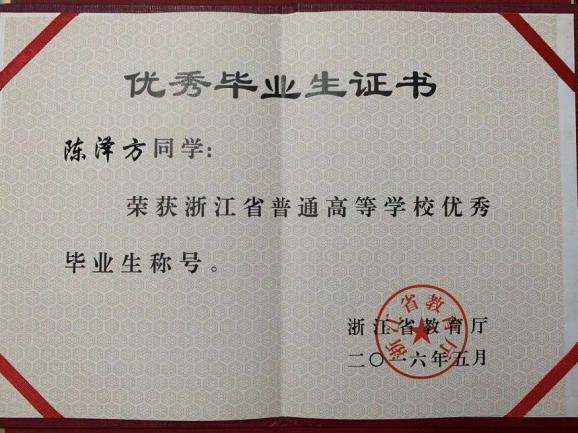 优秀毕业生证书
陈泽方同学:
荣获浙江省普通高等学校优秀
毕业生称号。
浙江省教育厅
二〇一六年五月
浙江省教育厅